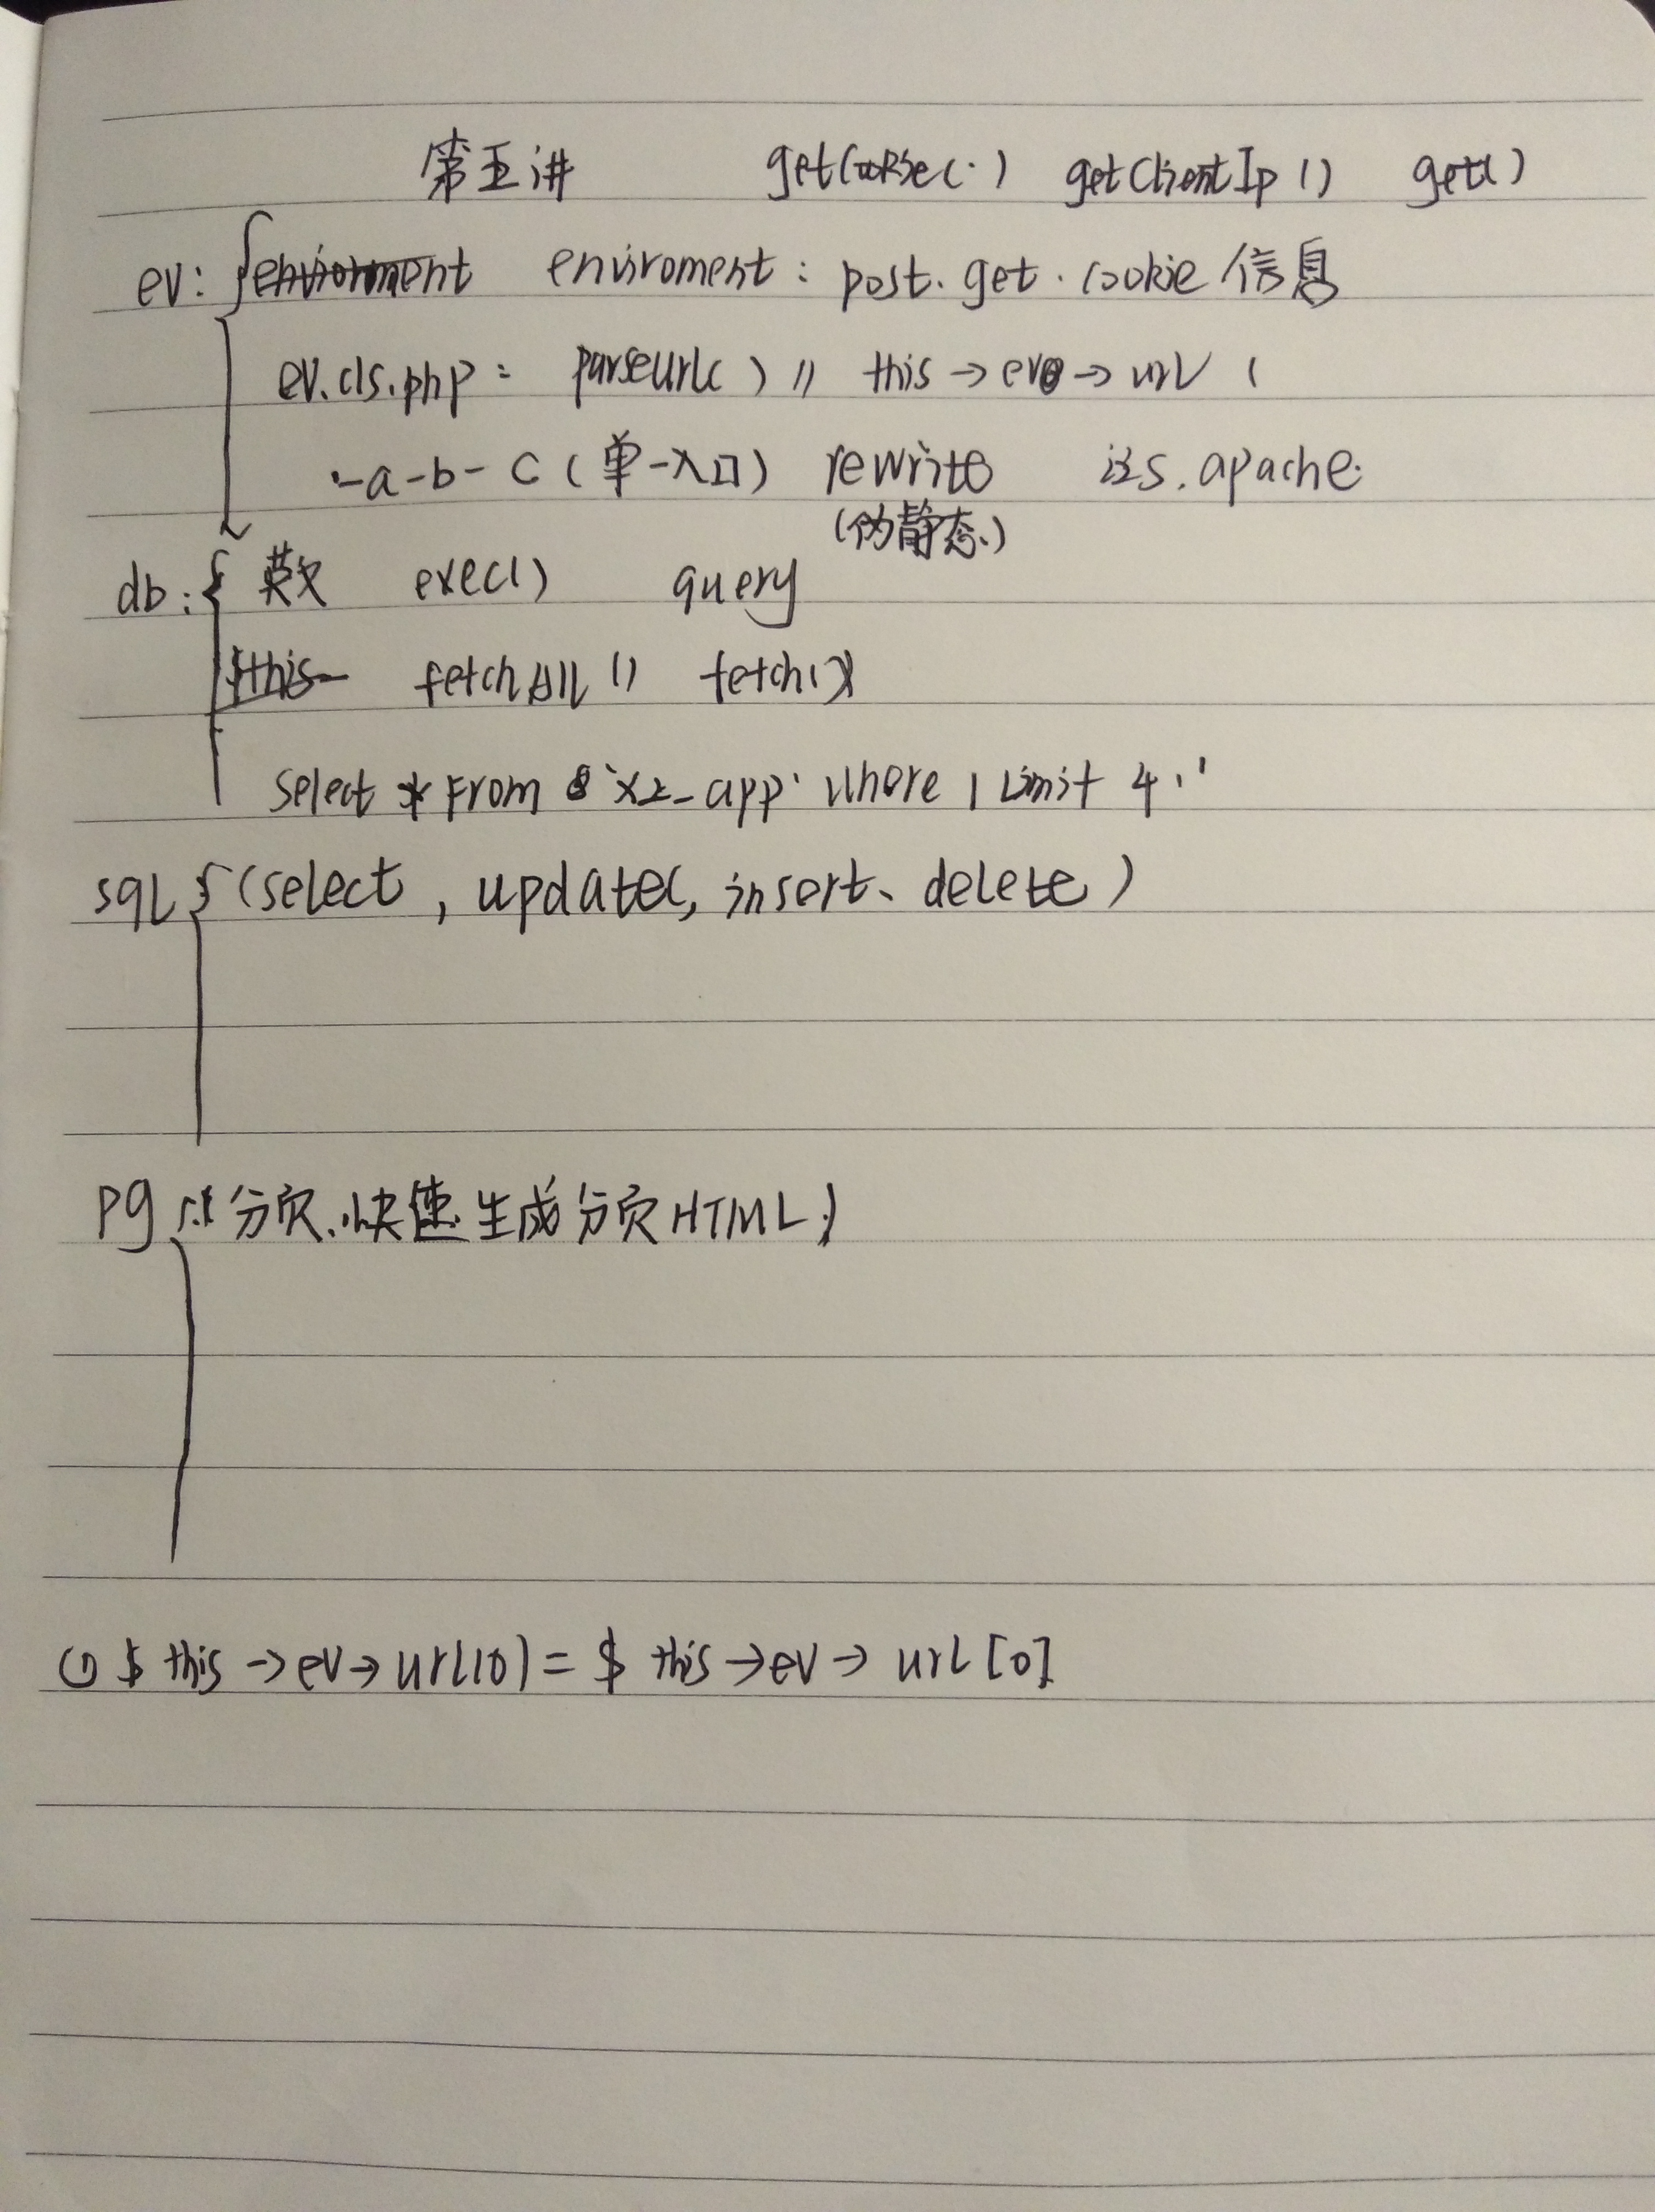 第五讲 getCookie(·) getClientIp() get()
ev: enviroment : post. get. cookie 信息
ev.cls.php : parseUrl() // this → ev → url (
-a-b-c (单一入口) rewrite iis. apache.
(伪静态.)
db: exec() query
fetchAll() fetch()
select * From `x2_app` where 1 Limit 4,'
sql { (select , update(, insert、 delete )
pg { 分页、快速生成分页HTML }
① $ this → ev → url(0) = $ this → ev → url [0]